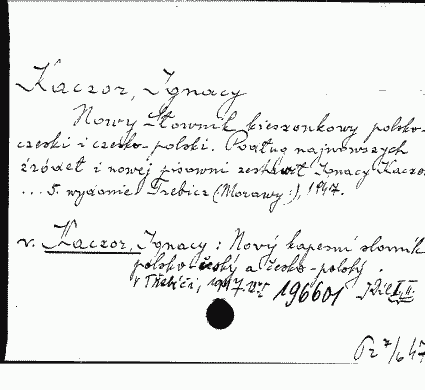 Kaczor, Ignacy
Nowy Słownik kieszonkowy polsko-
czeski i czesko-polski. Podług najnowszych
źródeł i nowej pisowni zestawił Ignacy Kaczor
... 5. wydanie Třebíc (Morawy:), 1947.
v. Kaczor, Ignacy: Nový kapesní slovník
polsko-český a česko-polský.
v Třebíči, 1947
196601 I, II.